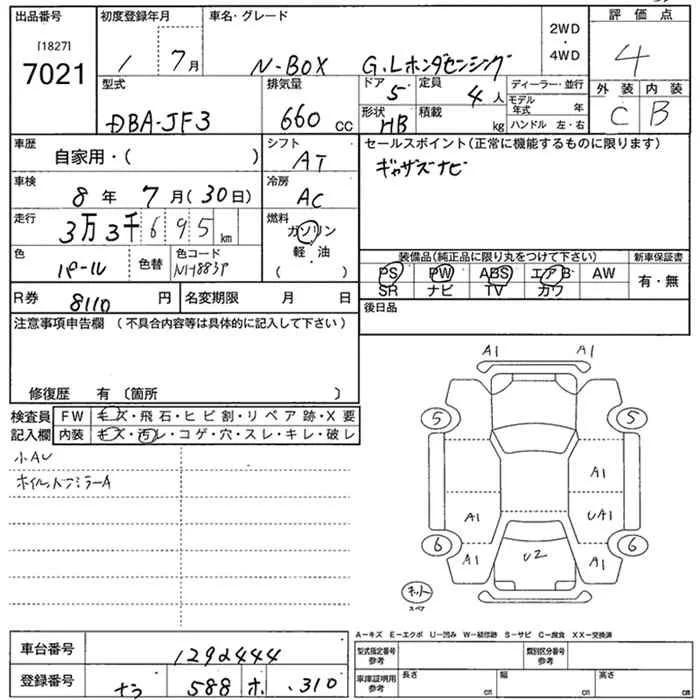 出品番号
[1827]
7021
初度登録年月
1 7月
車名・グレード
N-BOX G.Lホンダセンシング
2WD
・
4WD
評価点
4
外装 内装
C B
型式
DBA-JF3
排気量
660 cc
ドア
5
定員
4人
形状
HB
積載
kg
ディーラー・並行
モデル年式 年
ハンドル 左・右
車歴
自家用・( )
シフト
AT
セールスポイント(正常に機能するものに限ります)
ギャザズナビ
車検
8年 7月(30日)
冷房
AC
走行
3万3千695km
燃料
ガソリン
軽・油
( )
色
パール
色替
色コード
NH883P
装備品(純正品に限り丸をつけて下さい)
PS PW ABS エアB AW
SR ナビ TV カワ
新車保証書
有・無
R券
8110円
名変期限 月 日
後日品
注意事項申告欄(不具合内容等は具体的に記入して下さい)
修復歴 有〔箇所 〕
検査員
記入欄
FW キズ・飛石・ヒビ割・リペア跡・X要
内装 キズ・汚レ・コゲ・穴・スレ・キレ・破レ
小AU
A1 A1
5 5
A1
A1 UA1
6 6
A1 U2 A1
キット
スペア
A−キズ E−エクボ U−凹み W−補修跡 S−サビ C−腐食 XX−交換済
車台番号
1292444
登録番号
588 ホ .310
型式指定番号
参考
類別区分番号
参考
車庫証明用
参考
長さ cm
幅 cm
高さ cm